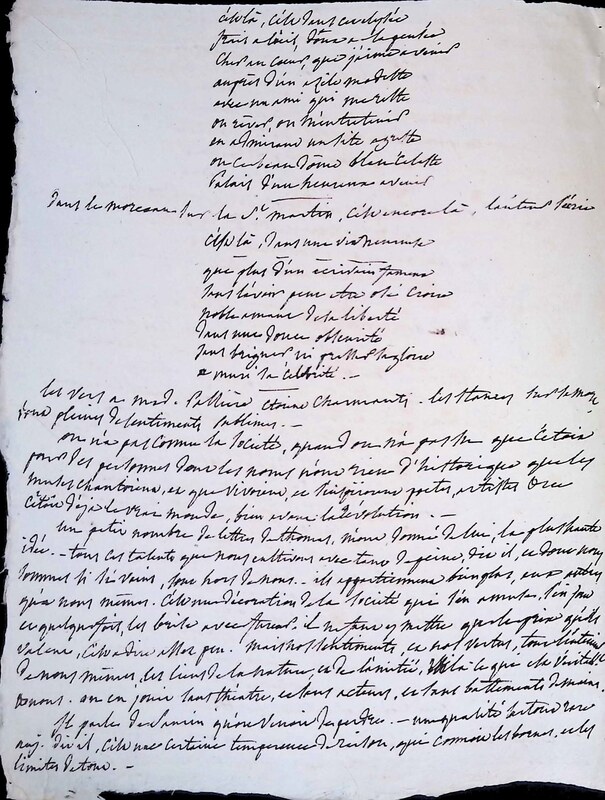 c'est là, c'est dans cet élysée
frais à l'œil, doux à la pensée
cher au cœur, que j'aime à venir
auprès d'un asile modeste
avec un ami qui me reste
ou rêver, ou m'entretenir
en admirant un site agreste
ou ce beau dôme bleu céleste
Palais d'un heureux avenir
Dans le morceau sur la St martin, c'est encore là, l'auteur
c'est là, dans une vie heureuse
que plus d'un écrivain fameux
sans l'avoir peut être osé croire
noble amant de la liberté
dans une douce obscurité
sans briguer ni la gloire
a muri sa célébrité. —
les vers a mad. étoient charmants. les stances sur
pleines de sentiments sublimes. —
on n'a pas connu la société, quand on n'a pas su que c'étoit
pour des personnes dont les noms n'ont rien d'historique que les
muses chantoient, et que vivoient, et s'inspiroient poetes, artistes &ce
c'étoit déjà le vrai monde, bien avant la révolution. —
un petit nombre de lettres de thomas, m'ont donné de lui, la plus haute
idée. — tous ces talents que nous cultivons avec tant de peine, dit il, et dont nous
sommes si vains, sont hors de nous. — ils appartiennent bien plus, aux autres
qu'a nous mêmes. c'est une décoration de la société qui s'en amuse, s'en joue
en quelque sort, les brise avec il ne faut y mettre que le prix qu'ils
valent, c'est à dire assez peu. mais nos sentiments, et nos vertus, tout
de nous mêmes, les liens de la nature, et de l'amitié, voilà ce qui est à véritablement
nous. on en jouit sans théatre, et sans acteurs, et sans battements de mains.
Il parle de qu'on venoit de perdre. — une qualité surtout rare
auj. dit il, c'est une certaine temperance de raison, qui connoit les bornes, et les
limites de tout. —